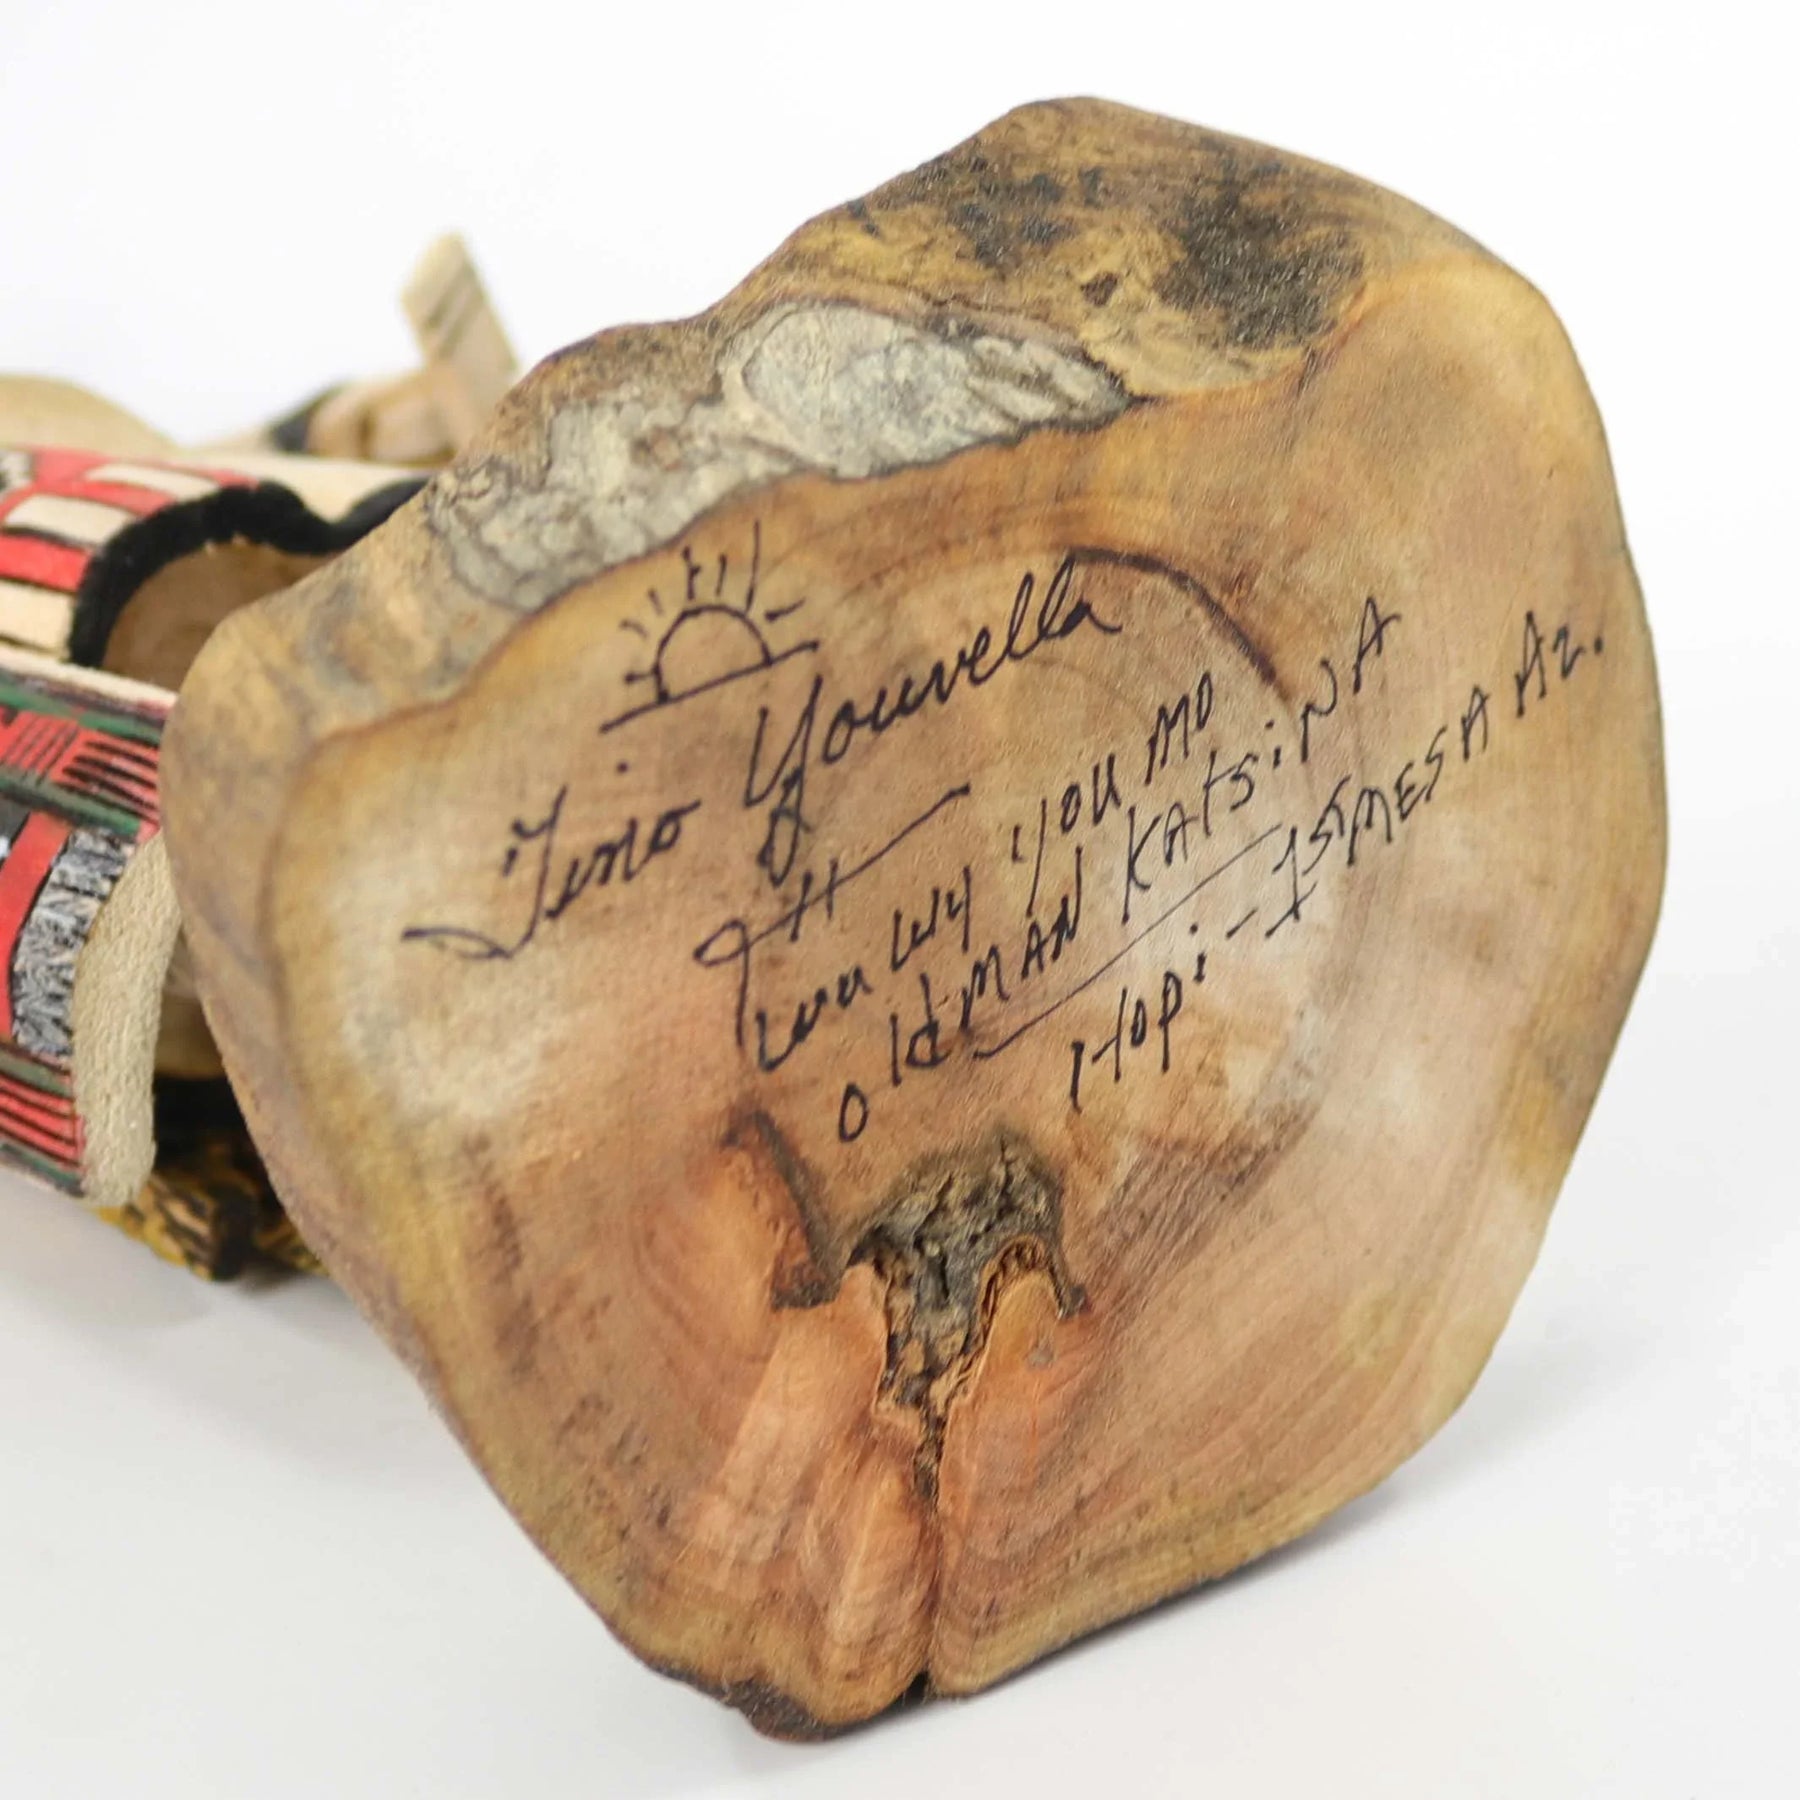 Tino Youvella
WuuWy YouMo
OldMAN KAtsiNA
Hopi - 1st MESA Az.